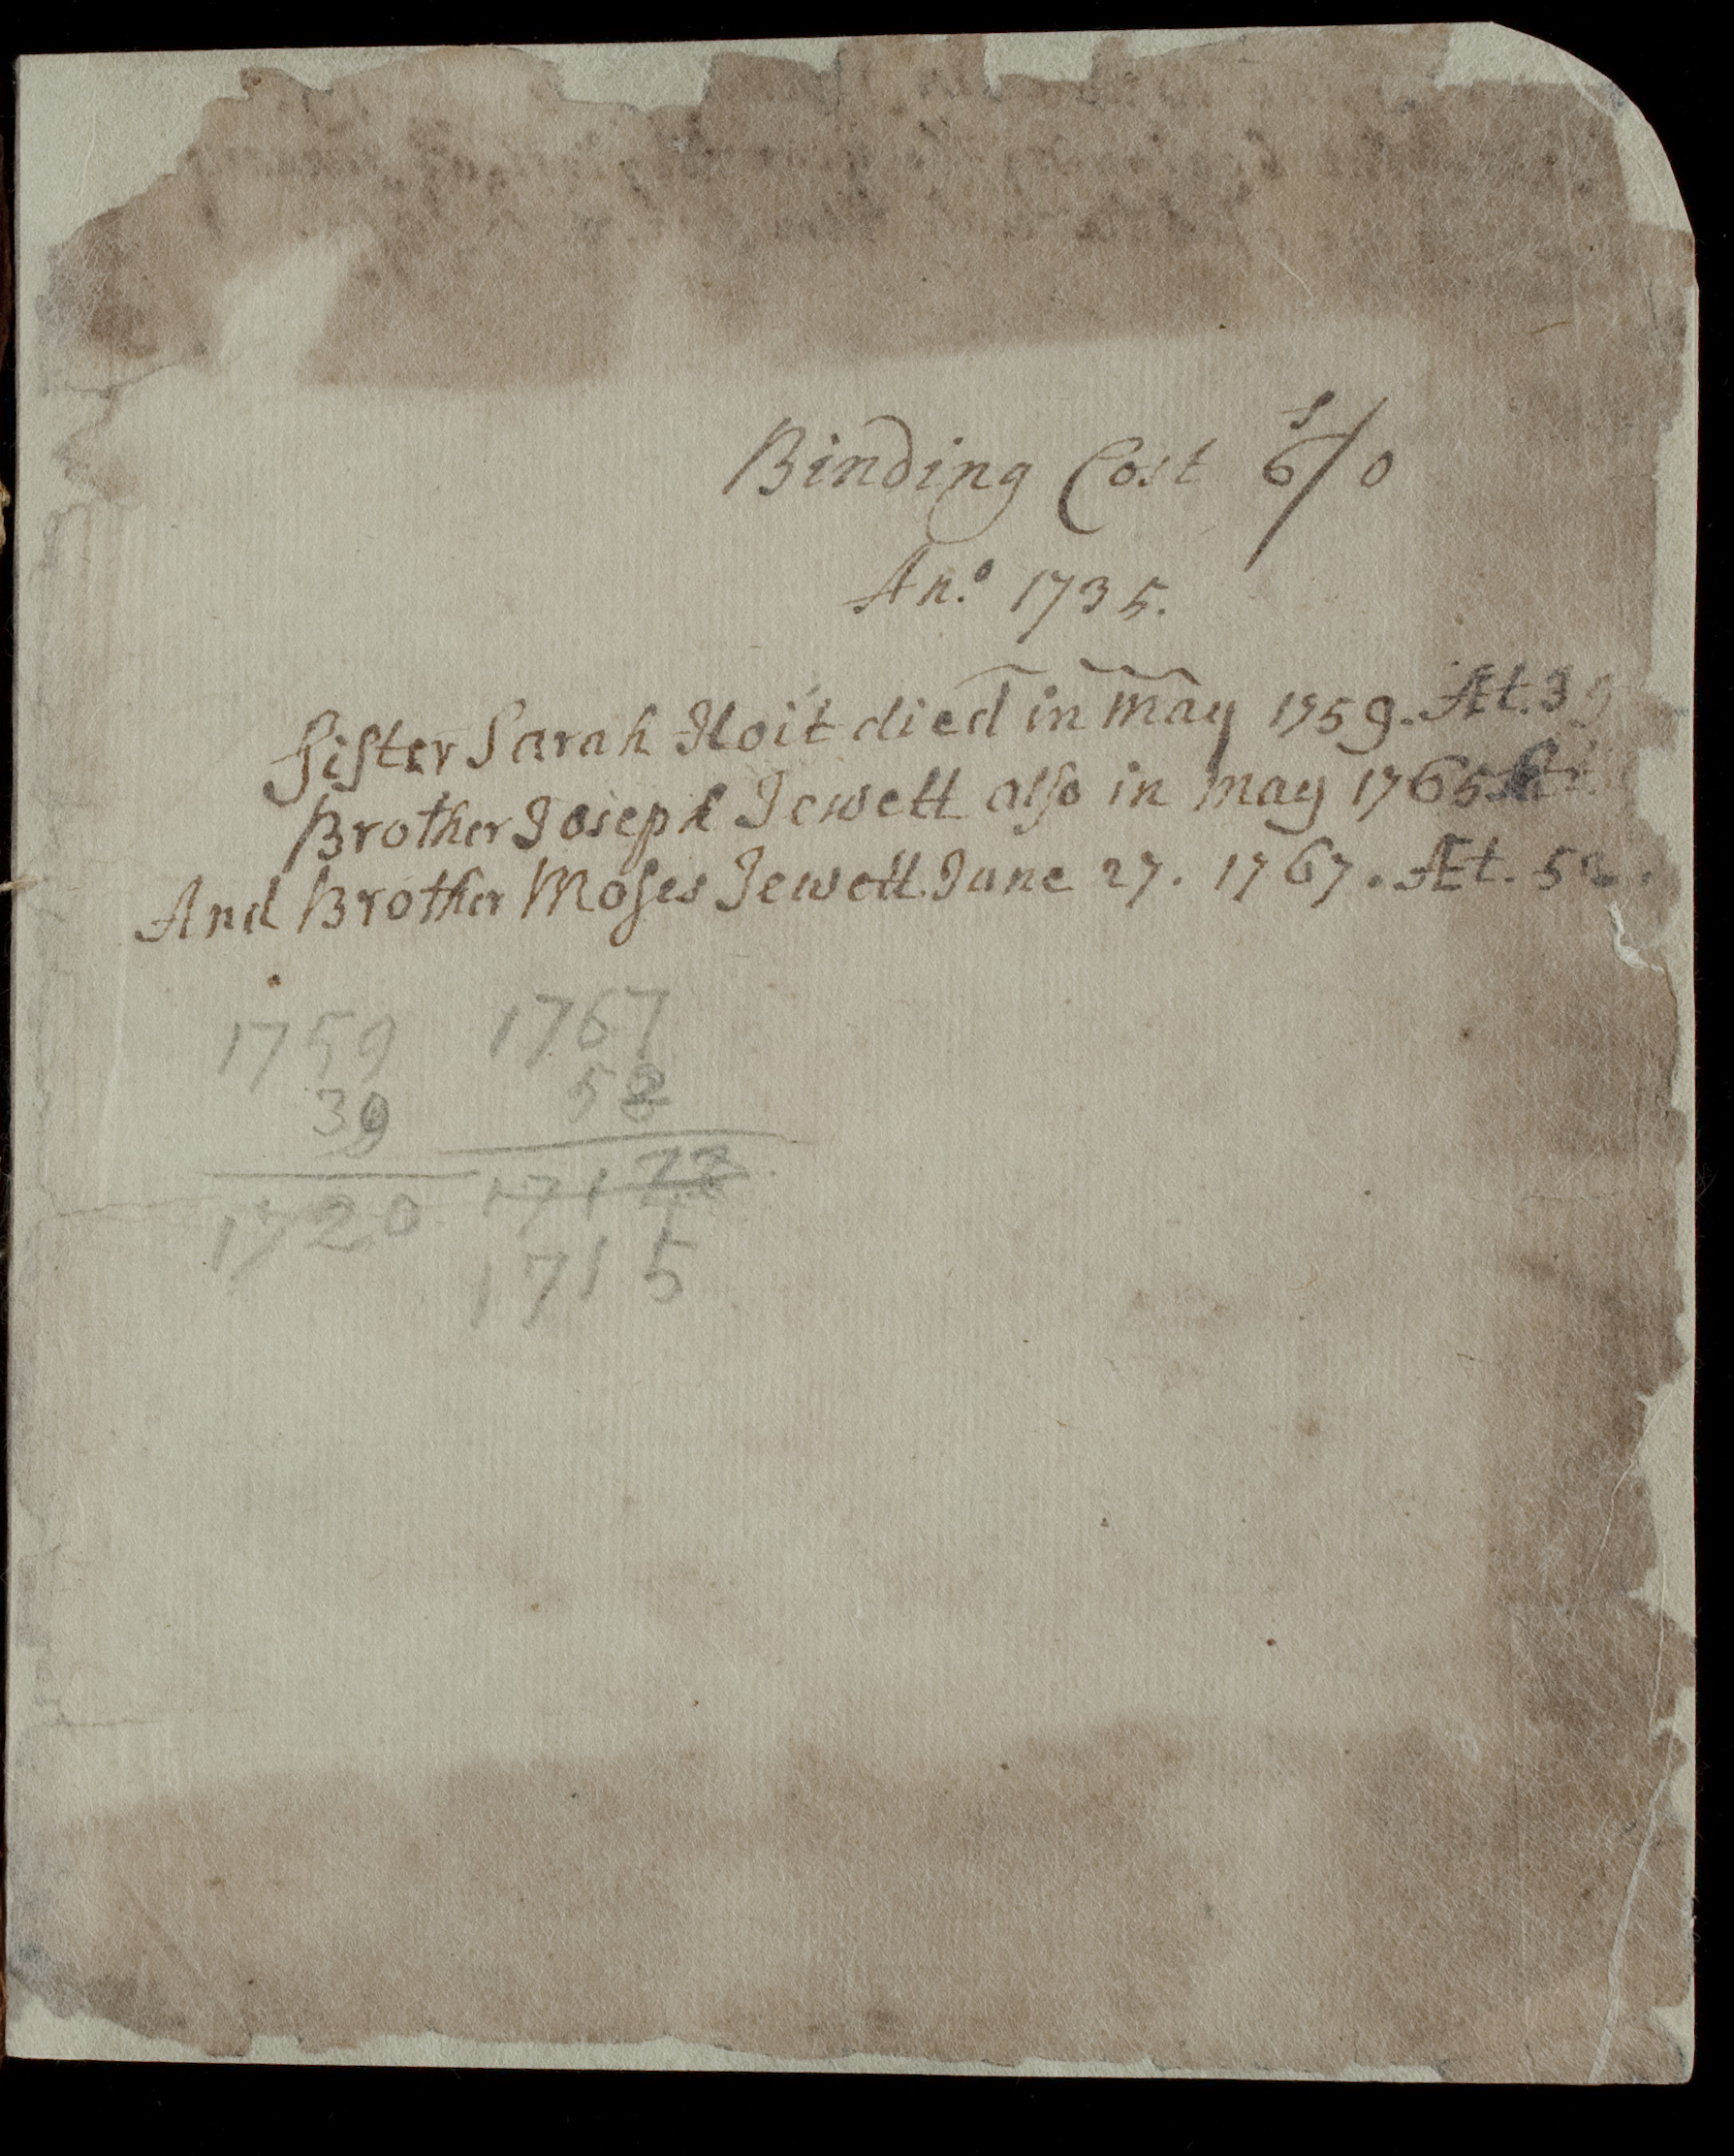 Binding Cost 6s/0
An.o 1735.
Sister Sarah Hoit died in may 1759. Æt. 39
Brother Joseph Jewett also in may 1765 Æt.
And Brother Moses Jewett June 27. 1767. Æt. 52.
1759 1767
39 52
1720 1717
1715